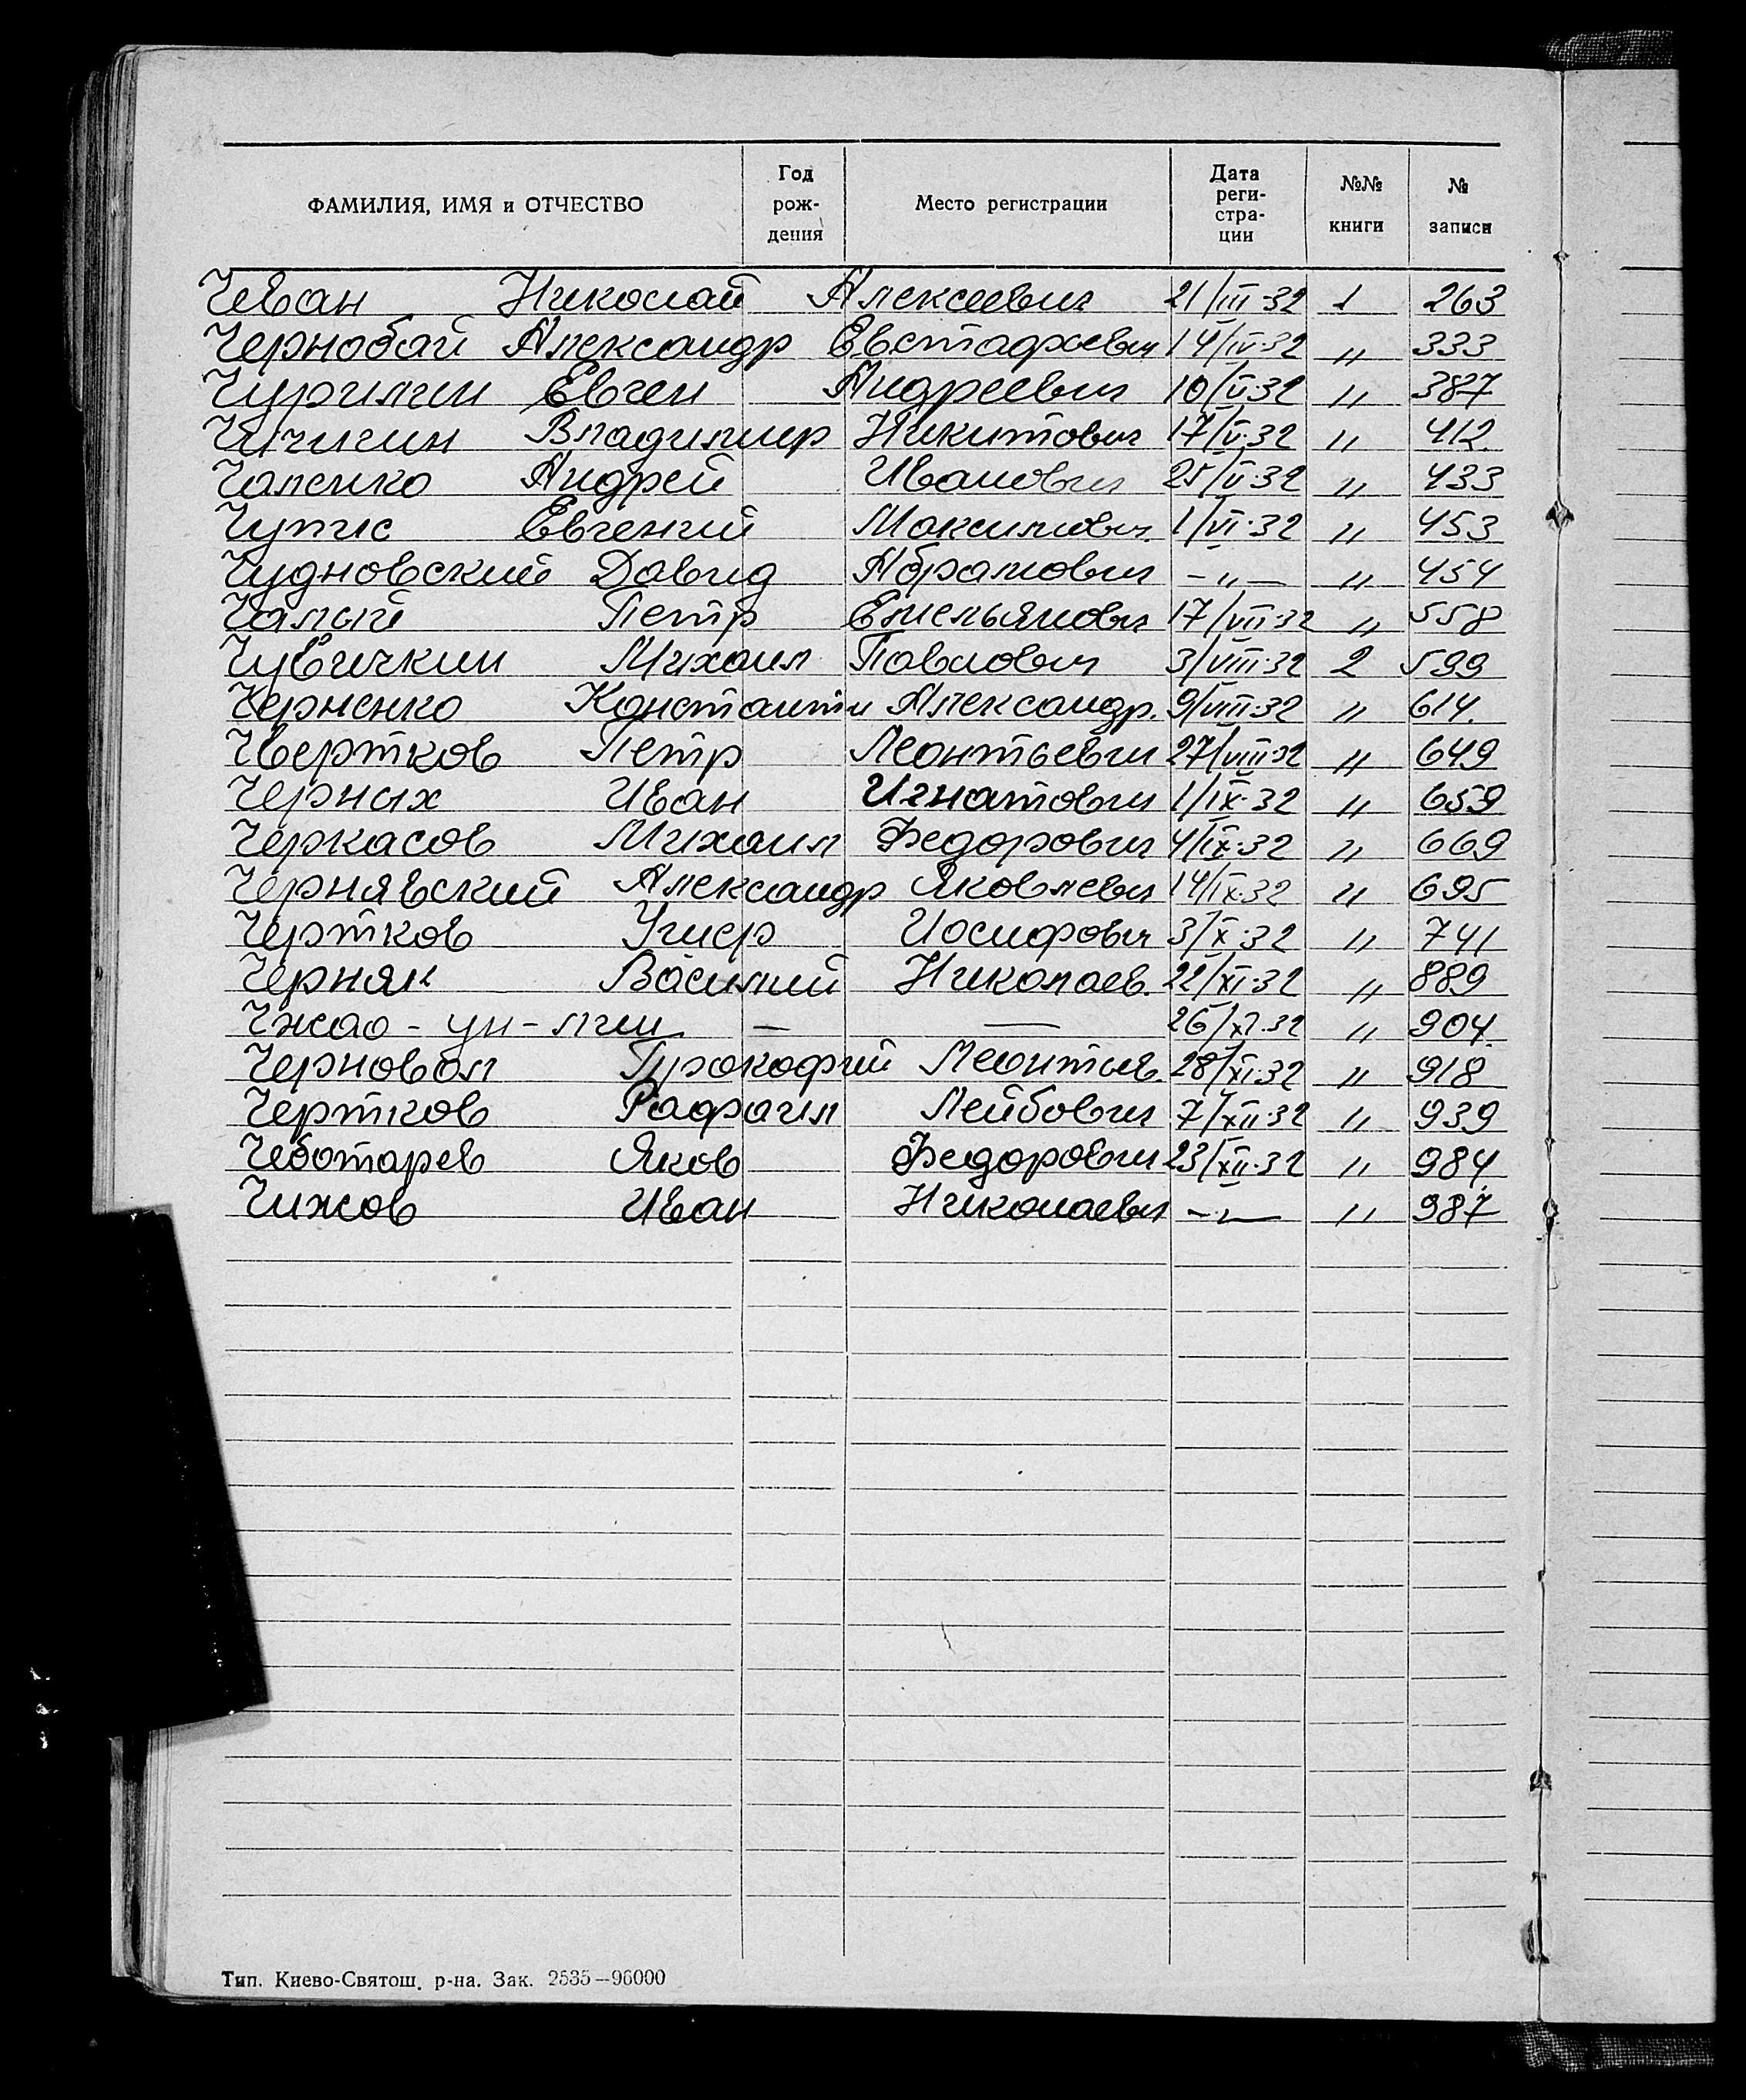 ФАМИЛИЯ, ИМЯ и ОТЧЕСТВО Год рождения Место регистрации Дата регистрации №№ книги № записи
Чеван Николай Алексеевич 21/III-32 1 263
Чернобай Александр Евстафиевич 14/IV-32 " 333
Евген Андреевич 10/V-32 " 387
Чичигин Владимир Никитович 17/V-32 " 412
Чаленко Андрей Иванович 25/V-32 " 433
Евгений Максимович. 1/VI-32 " 453
Чудновский Давид Абрамович - " - " 454
Чалый Петр Емельянович 17/VII-32 " 558
Чувичкин Михаил Павлович 3/VIII-32 2 599
Черненко Константин Александр. 9/VIII-32 " 614.
Чвертков Петр Леонтьевич 27/VIII-32 " 649
Черных Иван Игнатович 1/IX-32 " 659
Черкасов Михаил Федорович 4/IX-32 " 669
Чернявский Александр Яковлевич 14/IX-32 " 695
Чертков Иосифович 3/X-32 " 741
Черняк Василий Николаев. 22/XI-32 " 889
Чжао-ун-лин — — 26/XI-32 " 904.
Черновол Прокофий Леонтьев. 28/XI-32 " 918
Чертков Рафаил Лейбович 7/XII-32 " 939
Чеботарев Яков Федорович 23/XII-32 " 984
Чижов Иван Николаевич - " - " 987
Тип. Киево-Святош. р-на. Зак. 2535—96000